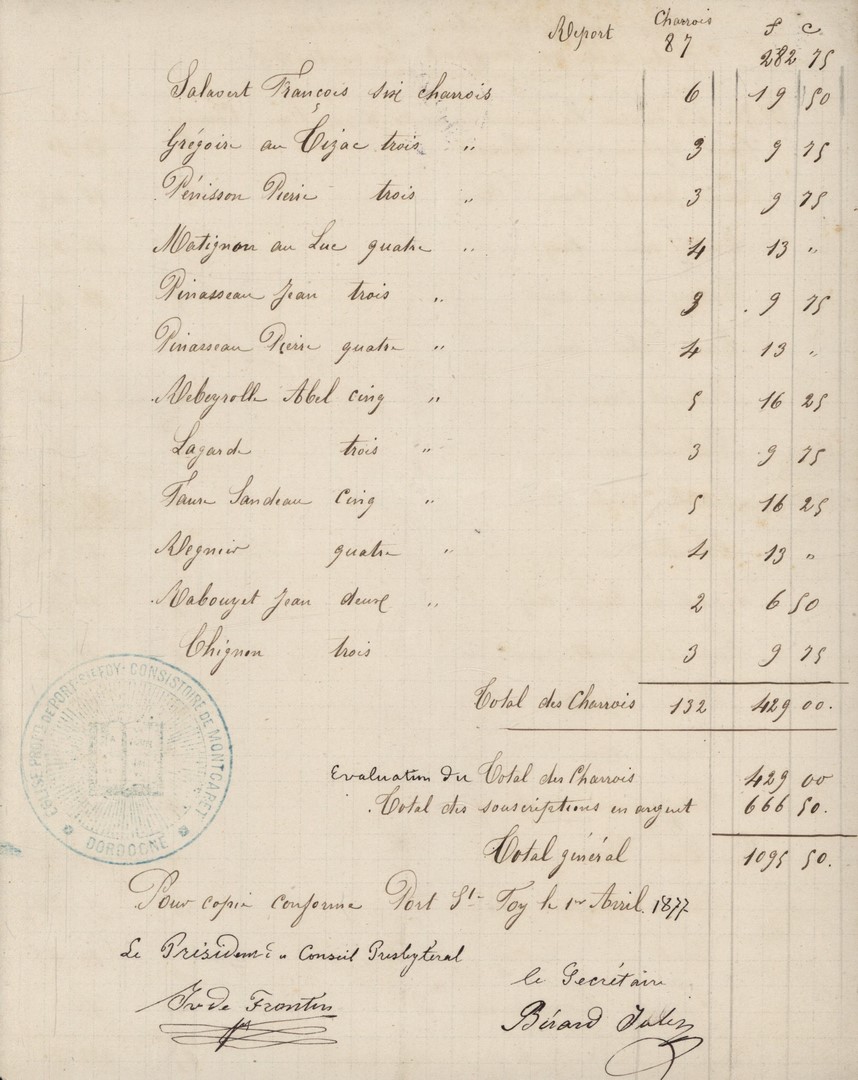 Charrois f c
Report 87 282 75
Salavert François six charrois 6 19 50
Grégoire au Tizac trois " 3 9 75
Pénisson Pierre trois " 3 9 75
Matignon au Luc quatre " 4 13 "
Pinasseau Jean trois " 3 9 75
Pinasseau Pierre quatre " 4 13 "
Rebeyrolle Abel cinq " 5 16 25
Lagarde trois " 3 9 75
Faure Sandeau cinq " 5 16 25
Regnier quatre " 4 13 "
Rabouyet Jean deux " 2 6 50
Chignon trois 3 9 75
Total des Charrois 132 429 00.
Evaluation du Total des Charrois 429 00
Total des souscriptions en argent 666 50.
Total général 1095 50.
Pour copie conforme Port St- Foy le 1er Avril 1877
Le Président du Conseil Presbytéral
le Secrétaire
Frontin
Bérard
EGLISE PROT. DE PORT STE FOY · CONSISTOIRE DE MONTCARET
DORDOGNE